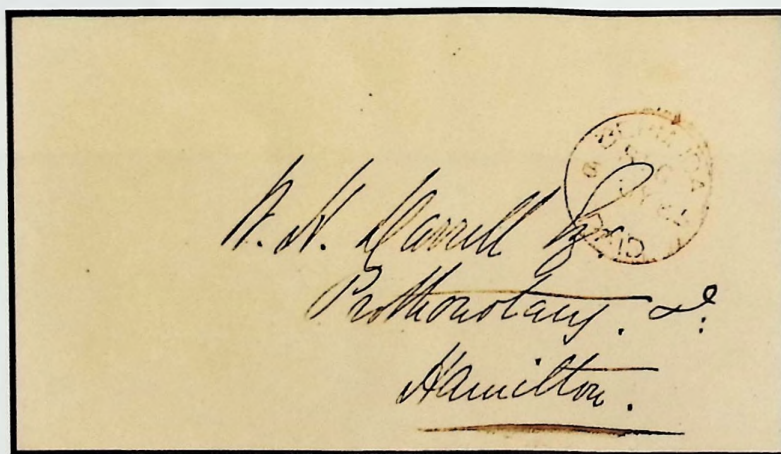 W. H. Darrell Esq.
Prothonotary. &c:
Hamilton.